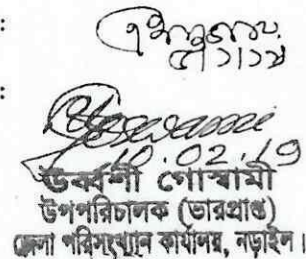 :
:
Goswami
10.02.19
উর্ব্বশী গোস্বামী
উপপরিচালক (ভারপ্রাপ্ত)
জেলা পরিসংখ্যান কার্যালয়, নড়াইল।